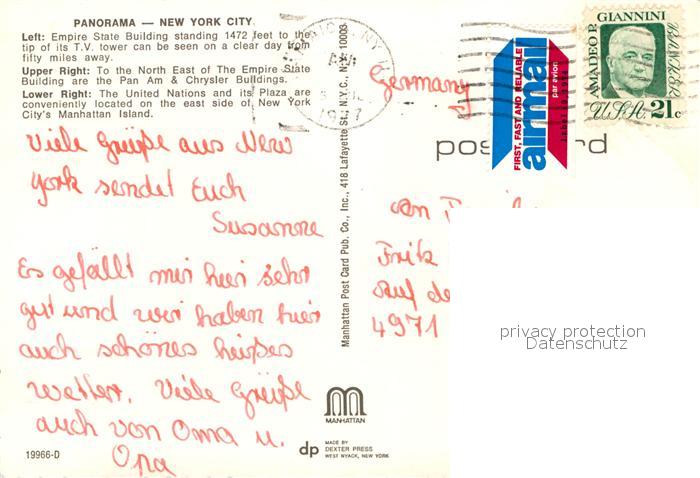 PANORAMA — NEW YORK CITY.
Left: Empire State Building standing 1472 feet to the
tip of its T.V. tower can be seen on a clear day from
fifty miles away.
Upper Right: To the North East of The Empire State
Building are the Pan Am & Chrysler Buildings.
Lower Right: The United Nations and its Plaza are
conveniently located on the east side of New York
City's Manhattan Island.
Viele Grüße aus New
York sendet Euch
Susanne
Es gefällt mir hier sehr
gut und wir haben hier
auch schönes heißes
Wetter. Viele Grüße
auch von Oma u.
Opa
19966-D
MANHATTAN
dp MADE BY
DEXTER PRESS
WEST NYACK, NEW YORK
Manhattan Post Card Pub. Co., Inc., 418 Lafayette St., N.Y.C., N.Y. 10003
AM
Germany
FIRST, FAST AND RELIABLE
airmail
par avion
AMADEO P. GIANNINI
USA 21c
an
Fritz
auf
4971
privacy protection
Datenschutz